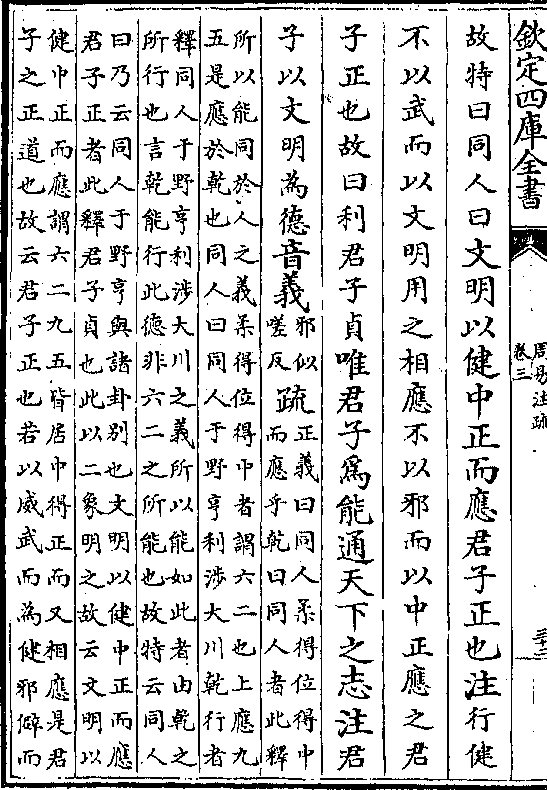 欽定四庫全書
周易注疏
卷三
三十二
故特曰同人曰文明以健中正而應君子正也注行健
不以武而以文明用之相應不以邪而以中正應之君
子正也故曰利君子貞唯君子爲能通天下之志注君
子以文明為德音義邪似
嗟反疏正義曰同人柔得位得中
而應乎乾曰同人者此釋
所以能同於人之義柔得位得中者謂六二也上應九
五是應於乾也同人曰同人于野亨利涉大川乾行者
釋同人于野亨利涉大川之義所以能如此者由乾之
所行也言乾能行此德非六二之所能也故特云同人
曰乃云同人于野亨與諸卦別也文明以健中正而應
君子正者此釋君子貞也此以二象明之故云文明以
健中正而應謂六二九五皆居中得正而又相應是君
子之正道也故云君子正也若以威武而為健邪僻而